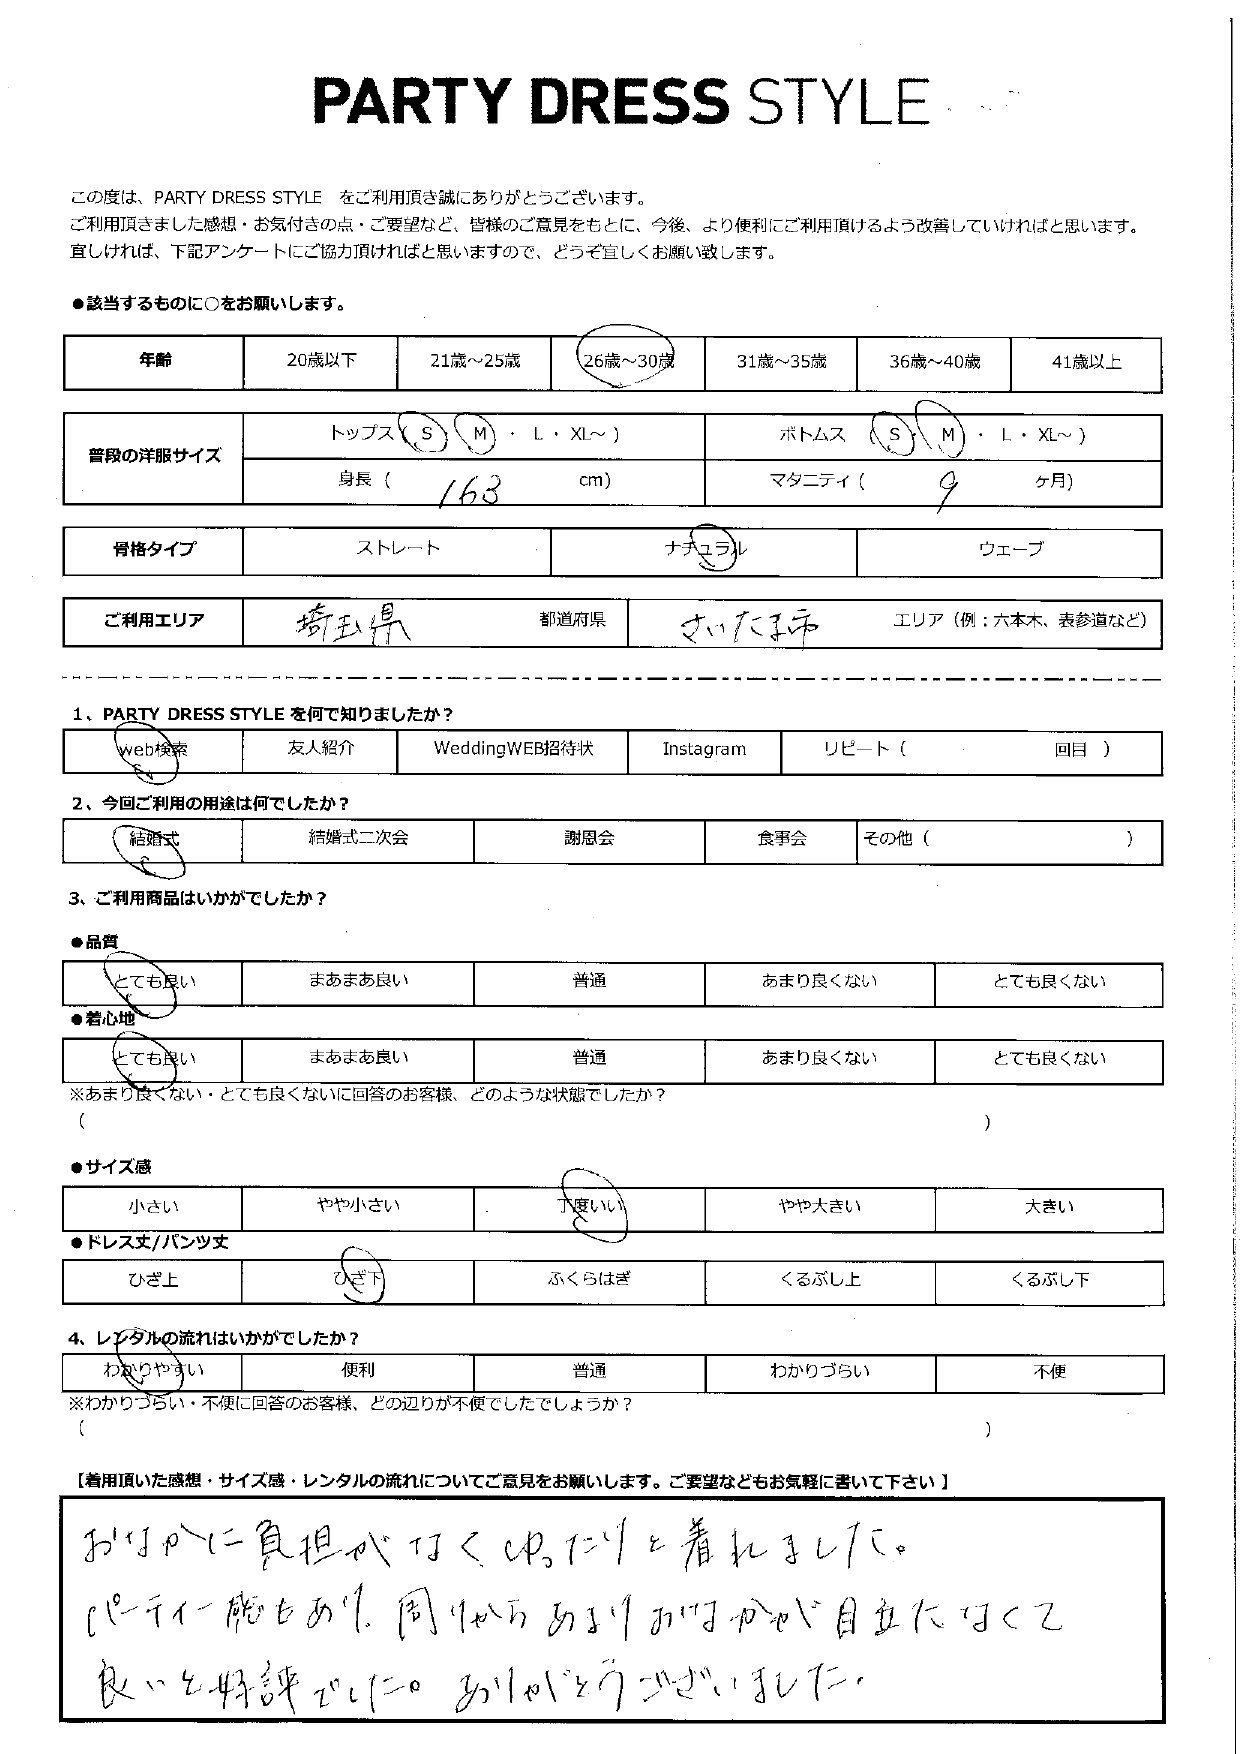 PARTY DRESS STYLE
この度は、PARTY DRESS STYLE をご利用頂き誠にありがとうございます。
ご利用頂きました感想・お気付きの点・ご要望など、皆様のご意見をもとに、今後、より便利にご利用頂けるよう改善していければと思います。
宜しければ、下記アンケートにご協力頂ければと思いますので、どうぞ宜しくお願い致します。
●該当するものに○をお願いします。
年齢 20歳以下 21歳～25歳 26歳～30歳 31歳～35歳 36歳～40歳 41歳以上
普段の洋服サイズ トップス（ S ・ M ・ L ・ XL～ ） ボトムス （ S ・ M ・ L ・ XL～ ）
身長（ 163 cm） マタニティ（ 9 ヶ月）
骨格タイプ ストレート ナチュラル ウェーブ
ご利用エリア 埼玉県 都道府県 さいたま市 エリア（例：六本木、表参道など）
1、PARTY DRESS STYLE を何で知りましたか？
web検索 友人紹介 WeddingWEB招待状 Instagram リピート（ 回目 ）
2、今回ご利用の用途は何でしたか？
結婚式 結婚式二次会 謝恩会 食事会 その他（ ）
3、ご利用商品はいかがでしたか？
●品質
とても良い まあまあ良い 普通 あまり良くない とても良くない
●着心地
とても良い まあまあ良い 普通 あまり良くない とても良くない
※あまり良くない・とても良くないに回答のお客様、どのような状態でしたか？
（ ）
●サイズ感
小さい やや小さい 丁度いい やや大きい 大きい
●ドレス丈/パンツ丈
ひざ上 ひざ下 ふくらはぎ くるぶし上 くるぶし下
4、レンタルの流れはいかがでしたか？
わかりやすい 便利 普通 わかりづらい 不便
※わかりづらい・不便に回答のお客様、どの辺りが不便でしたでしょうか？
（ ）
【着用頂いた感想・サイズ感・レンタルの流れについてご意見をお願いします。ご要望などもお気軽に書いて下さい 】
おなかに負担がなくゆったりと着れました。
パーティー感もあり、周りからあまりおなかが目立たなくて
良いと好評でした。ありがとうございました。